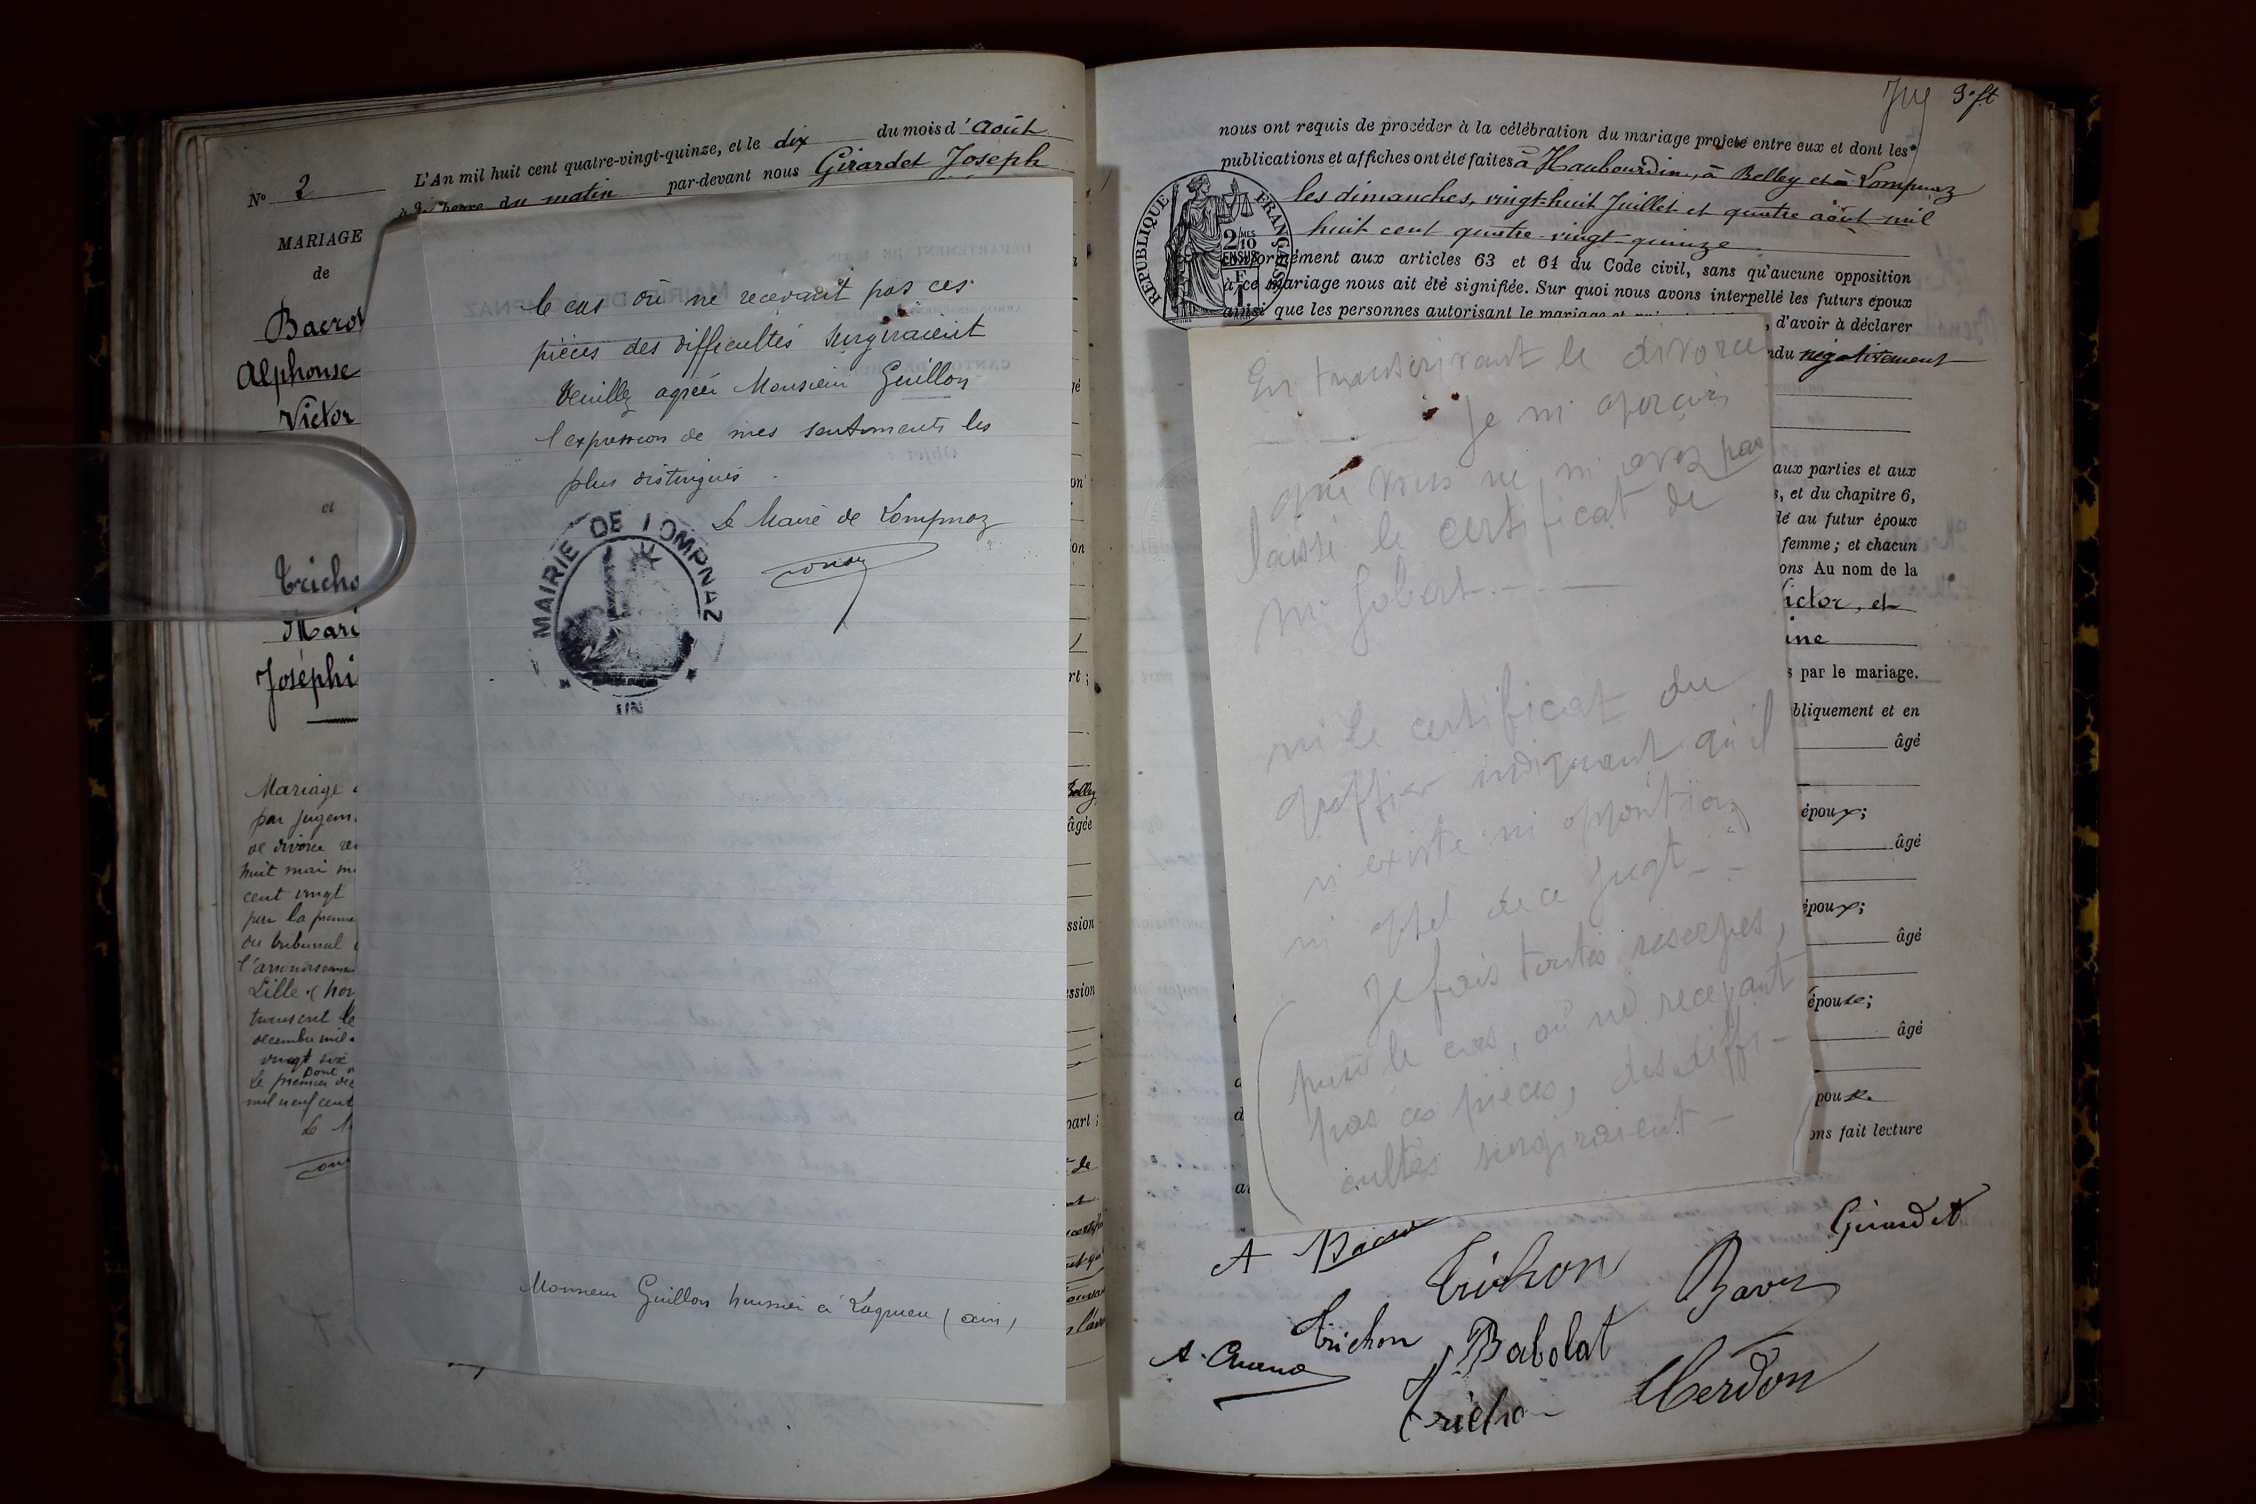 No 2
MARIAGE
de
Bacro
Alphonse
Victor
et
Tricho
Mari
Joséphi
Mariage
par jugem
de divorce re
huit mai m
cent vingt
par la premi
du tribunal
l'arrondissem
Lille (nor
transcrit le
décembre mil
vingt six
Dont
Le premier dé
mil neuf cent
Le M
L'An mil huit cent quatre-vingt-quinze, et le dix du mois d'août
heure du matin par-devant nous Girardet Joseph
le cas où ne recevant pas ces
pièces des difficultés surgiraient
Veuillez agréer Monsieur Guillon
l'expression de mes sentiments les
plus distingués
Le Maire de Lompnaz
MAIRIE DE LOMPNAZ
AIN
Monsieur Guillon huissier à Lagnieu (ain)
Belley
âgée
ssion
ession
part ;
de
3 ft
nous ont requis de procéder à la célébration du mariage projeté entre eux et dont les
publications et affiches ont été faites à Haubourdin, à Belley et à Lompnaz
les dimanches, vingt-huit Juillet et quatre août mil
huit cent quatre-vingt-quinze
RÉPUBLIQUE FRANÇAISE
2/10 MES
EN SUS
F
1
conformément aux articles 63 et 64 du Code civil, sans qu'aucune opposition
à ce mariage nous ait été signifiée. Sur quoi nous avons interpellé les futurs époux
ainsi que les personnes autorisant le mariage et , d'avoir à déclarer
ndu négativement
En transcrivant le divorce
je m'aperçois
que vous ne m'avez pas
laissé le certificat de
Me Jobert
ni le certificat du
greffier indiquant qu'il
n'existe ni opposition
ni appel de ce jugt
Je fais toutes réserves,
pour le cas, où ne recevant
pas ces pièces, des diffi-
cultés surgiraient
aux parties et aux
s, et du chapitre 6,
dé au futur époux
femme ; et chacun
ons Au nom de la
ictor, et
ine
s par le mariage.
bliquement et en
âgé
époux;
âgé
époux;
âgé
épouse;
âgé
pouse.
ons fait lecture
Girardet
A Bacro
Trichon
Bavoz
Trichon
Babolat
Trichon
Merdon